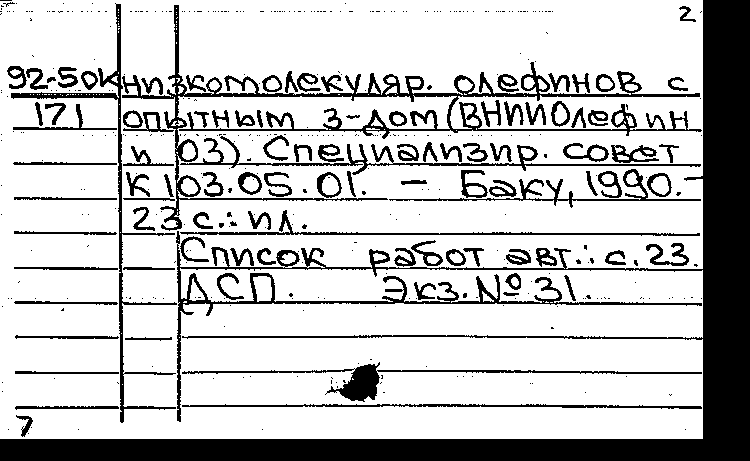 2
92-50к низкомолекуляр. олефинов с
171 опытным з-дом (ВНИИОлефин
и ОЗ). Специализир. совет
К 103.05.01. — Баку, 1990.-
23 с.: ил.
Список работ авт.: с. 23.
ДСП. Экз. № 31.
7